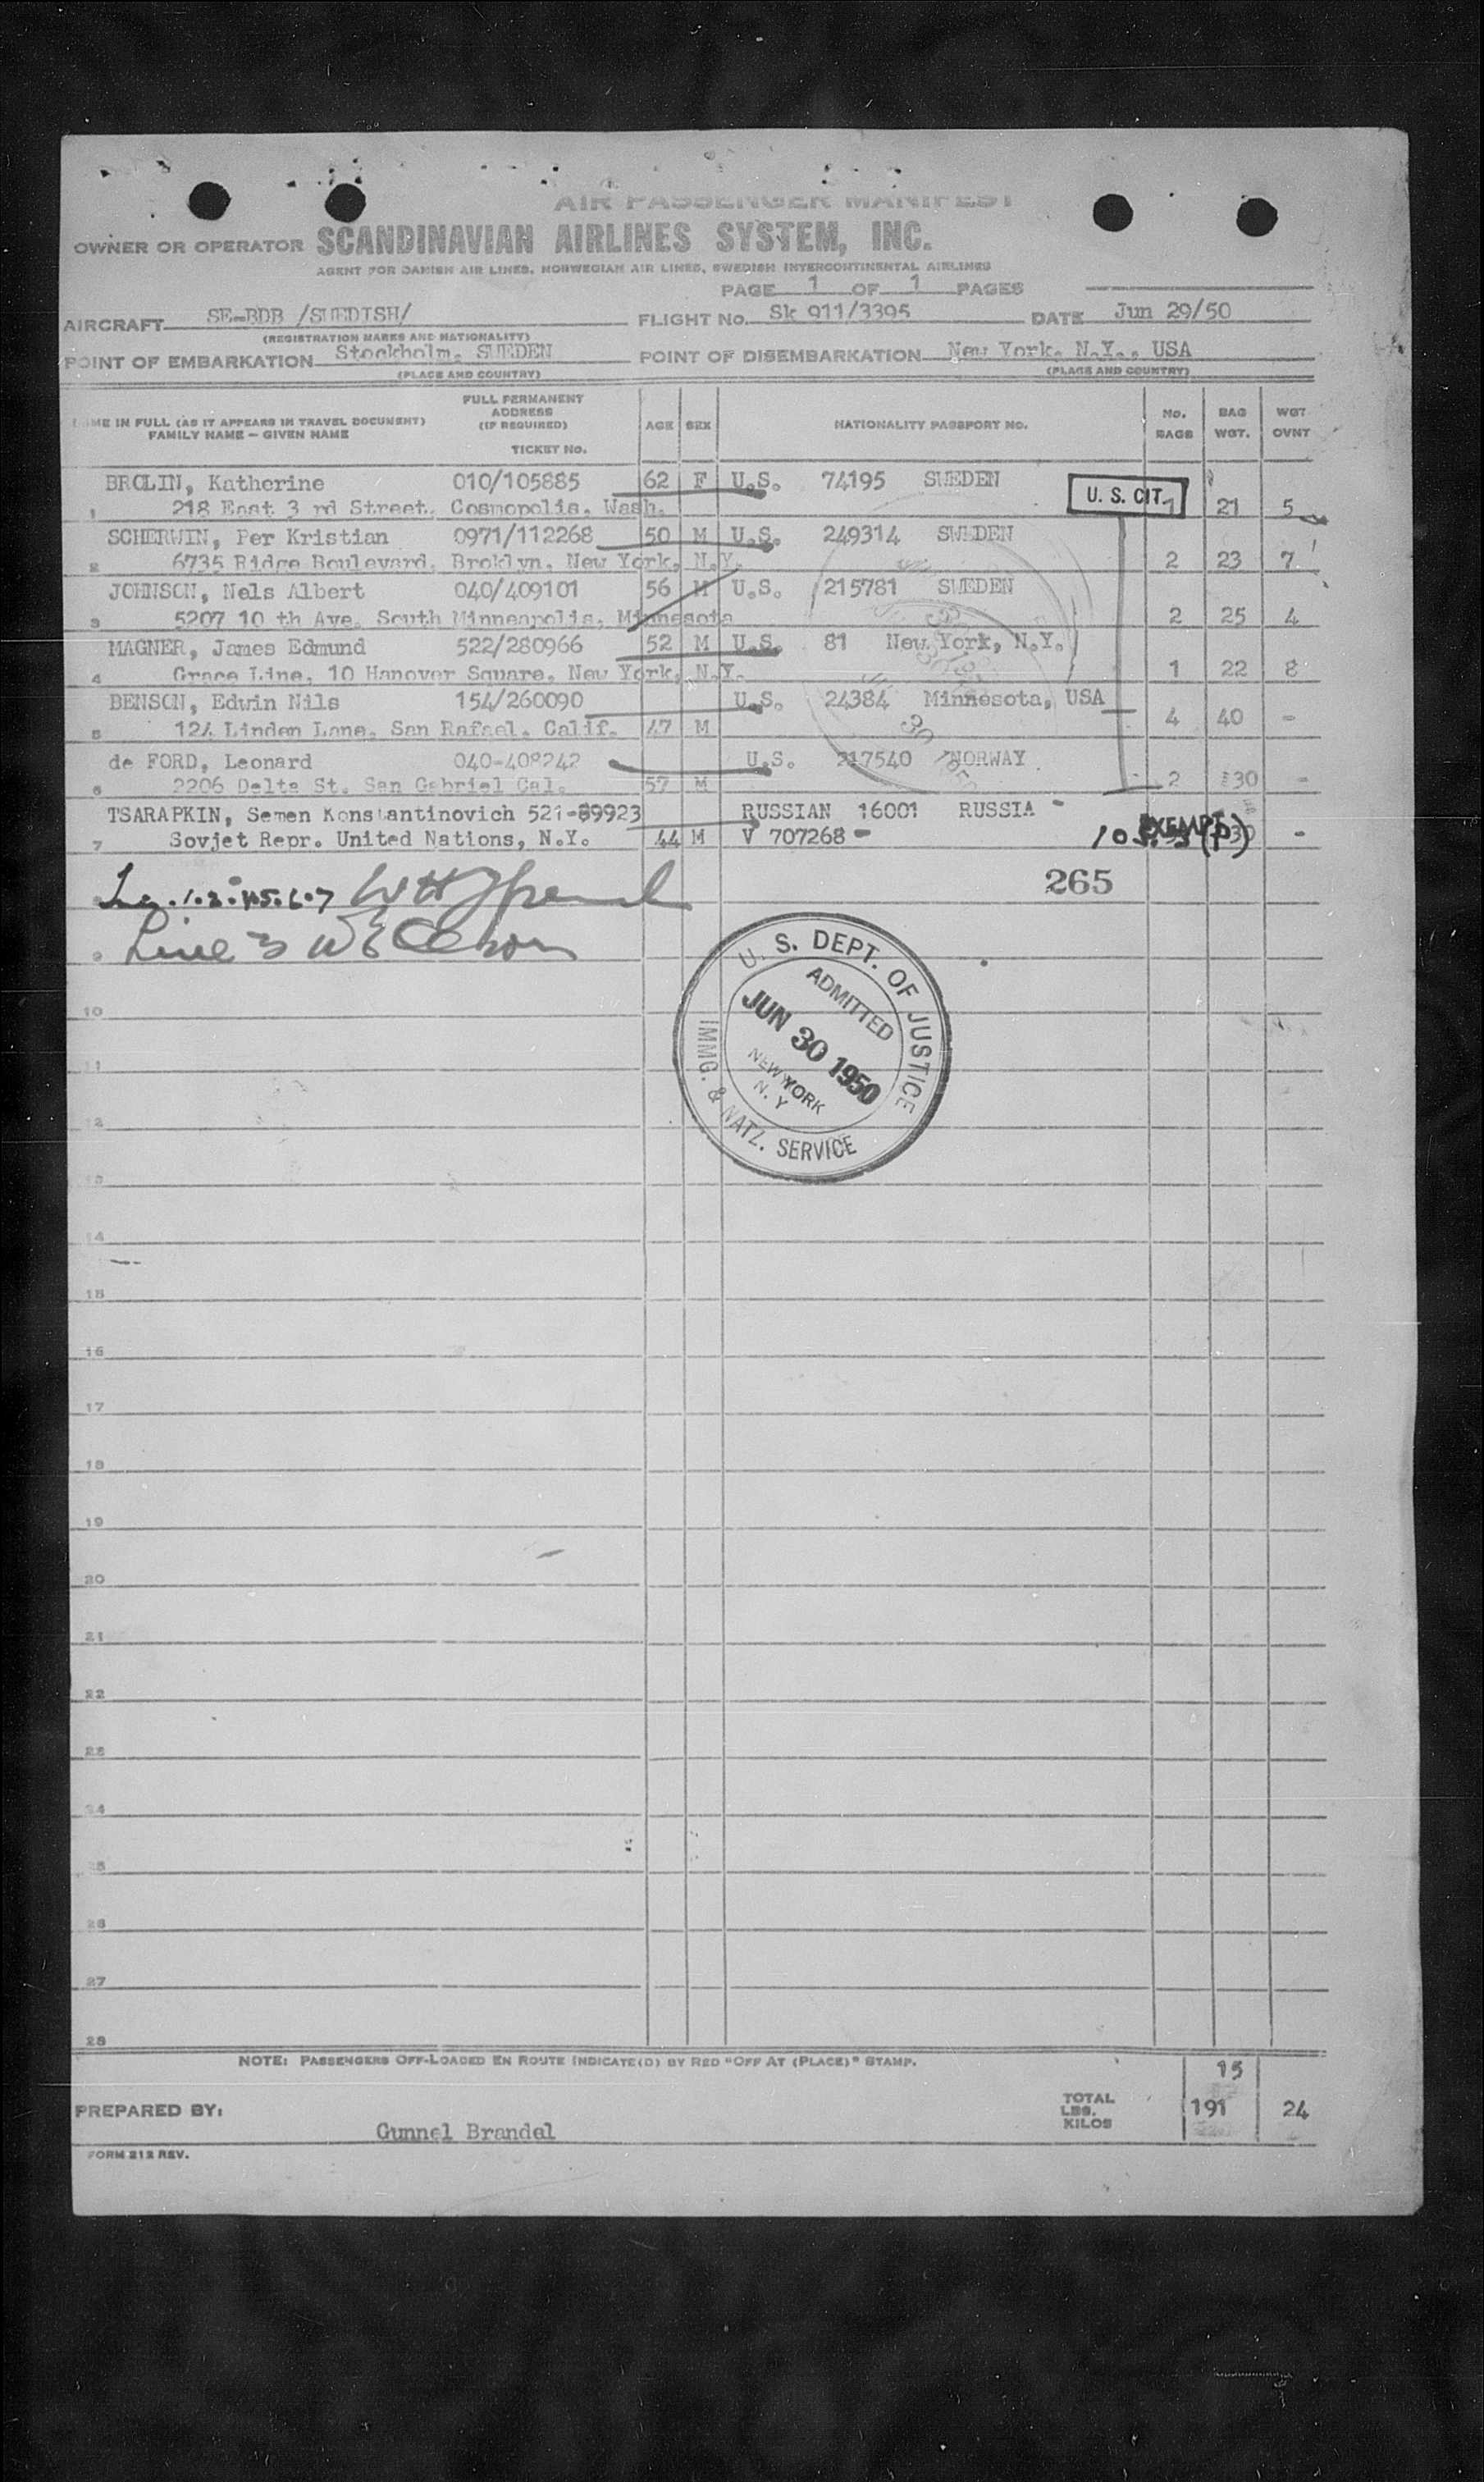 AIR PASSENGER MANIFEST
OWNER OR OPERATOR SCANDINAVIAN AIRLINES SYSTEM, INC.
AGENT FOR DANISH AIR LINES, NORWEGIAN AIR LINES, SWEDISH INTERCONTINENTAL AIRLINES
PAGE 1 OF 1 PAGES
AIRCRAFT SE-BDB /SWEDISH/ FLIGHT No. Sk 911/3395 DATE Jun 29/50
(REGISTRATION MARKS AND NATIONALITY)
POINT OF EMBARKATION Stockholm, SWEDEN POINT OF DISEMBARKATION New York, N.Y., USA
(PLACE AND COUNTRY) (PLACE AND COUNTRY)
NAME IN FULL (AS IT APPEARS IN TRAVEL DOCUMENT) FAMILY NAME – GIVEN NAME FULL PERMANENT ADDRESS (IF REQUIRED) TICKET No. AGE SEX NATIONALITY PASSPORT NO. No. BAGS BAG WGT. WGT OVNT
BROLIN, Katherine 010/105885 62 F U.S. 74195 SWEDEN U. S. CIT.
1 218 East 3 rd Street, Cosmopolis, Wash. 1 21 5
SCHERWIN, Per Kristian 0971/112268 50 M U.S. 249314 SWEDEN
2 6735 Ridge Boulevard, Broklyn, New York, N.Y. 2 23 7
JOHNSON, Nels Albert 040/409101 56 M U.S. 215781 SWEDEN
3 5207 10 th Ave. South Minneapolis, Minnesota 2 25 4
MAGNER, James Edmund 522/280966 52 M U.S. 81 New York, N.Y.
4 Grace Line, 10 Hanover Square, New York, N.Y. 1 22 8
BENSON, Edwin Nils 154/260090 U.S. 24384 Minnesota, USA
5 124 Linden Lane, San Rafael, Calif. 47 M 4 40 -
de FORD, Leonard 040-408242 U.S. 217540 NORWAY
6 2206 Delta St. San Gabriel Cal. 57 M 2 30 -
TSARAPKIN, Semen Konstantinovich 521-89923 RUSSIAN 16001 RUSSIA -
7 Sovjet Repr. United Nations, N.Y. 44 M V 707268 - EXEMPT 30 -
265
Line 3
9
U. S. DEPT. OF JUSTICE
ADMITTED
JUN 30 1950
NEW YORK
N. Y
IMMG. & NATZ. SERVICE
10
11
12
13
14
15
16
17
18
19
20
21
22
23
24
25
26
27
28
NOTE: PASSENGERS OFF-LOADED EN ROUTE INDICATE(D) BY RED "OFF AT (PLACE)" STAMP.
15
PREPARED BY: Gunnel Brandel TOTAL LBS. KILOS 191 24
FORM 212 REV.